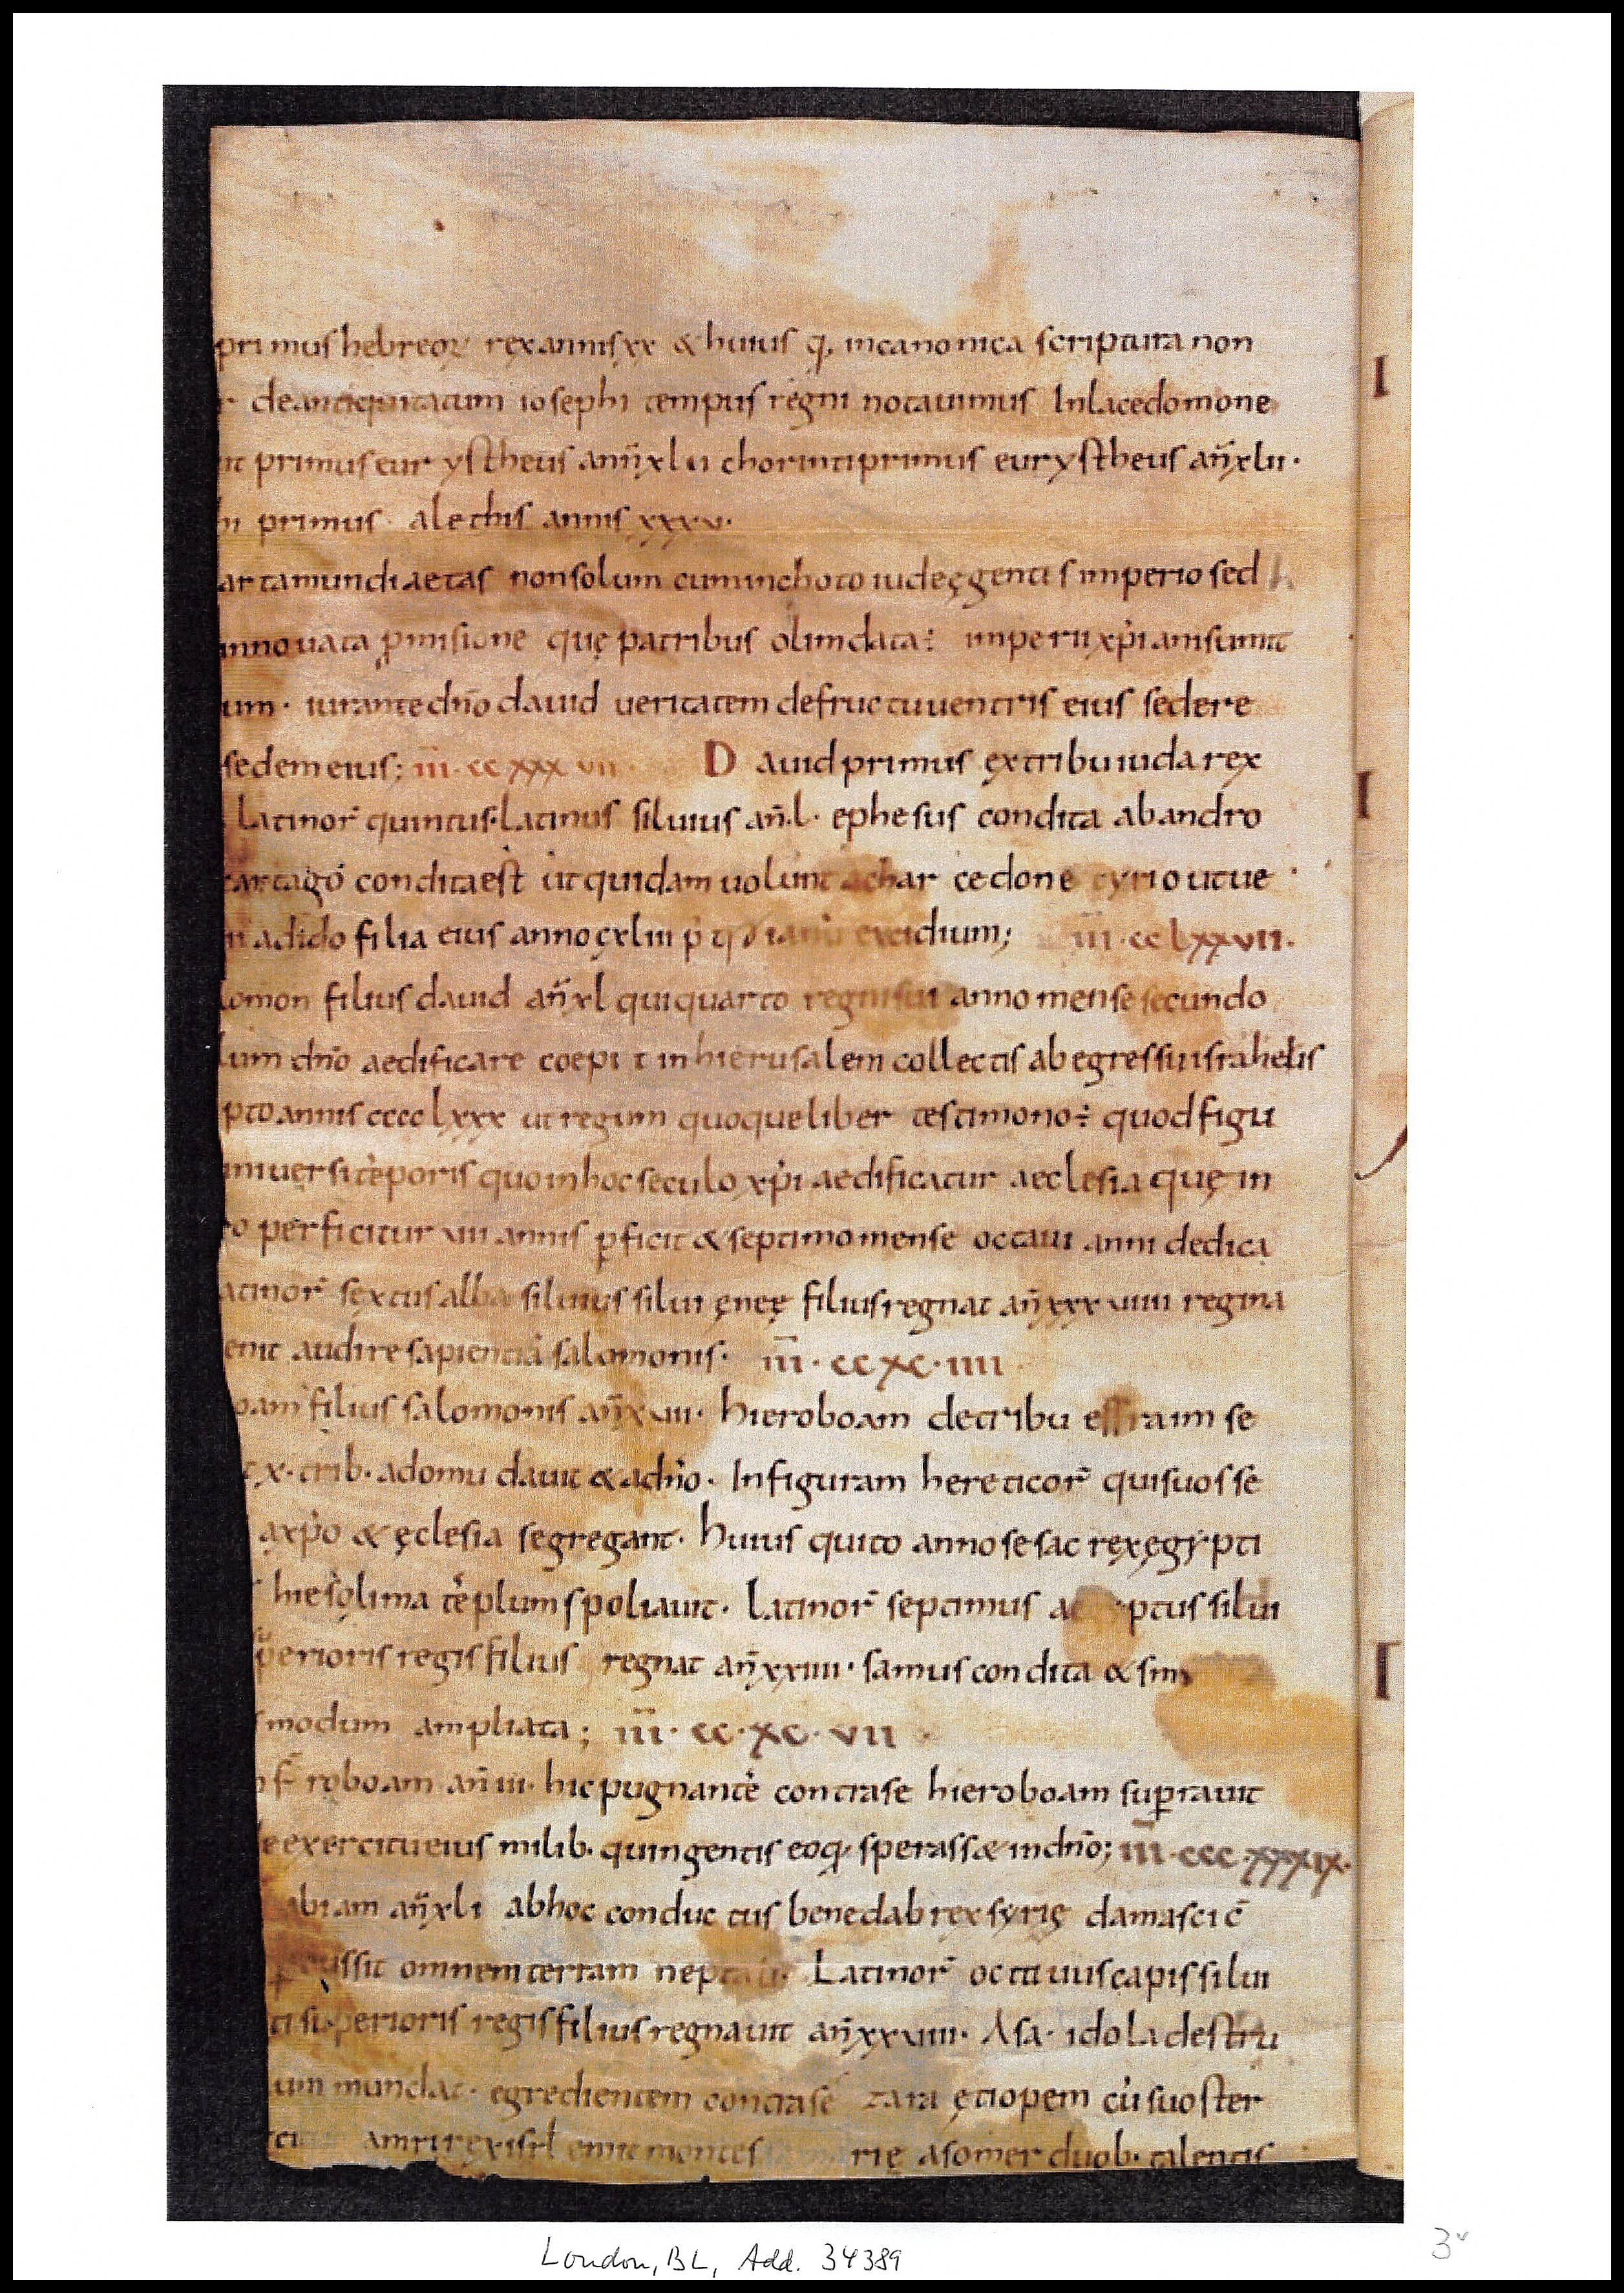 primus hebreoꝝ rex annis xx & huius q; in canonica scriptura non
de antiquitatum iosephi tempus regni notauimus In lacedomone
primus eurystheus ann̄ xlii chorinti primus eurystheus an̄ xlii·
primus· alethis annis xxxv·
arta mundi aetas non solum cum inchoto iudeę gentis imperio sed h
innouata ꝓmisione quę patribus olim data÷ imperii xp̄iani sumit
um· iurante dn̄o dauid ueritatem de fructu uentris eius sedere
sedem eius; iii·ccxxxvii· Dauid primus ex tribu iuda rex
Latinor̄ quintus· latinus siluius an̄·l· ephesus condita ab andro
cartago condita est ut quidam uolunt a char cedone tyrio ut ue
a dido filia eius anno cxliii excidium; iii·cclxxvii·
lomon filius dauid an̄ xl qui quarto regni sui anno mense secundo
lum dn̄o aedificare coepit in hierusalem collectis ab egressu israhelis
pto annis cccclxxx ut regum quoque liber testimono÷ quod figu
uniuersi tēporis quo in hoc seculo xp̄i aedificatur aeclesia quę in
o perficitur uii annis ꝑficit & septimo mense octaui anni dedica
atinor̄ sextus alba siluius silui ęneę filius regnat an̄ xxxuiiii regina
enit audire sapientiā salomonis· iii·ccxc·iiii
oam filius salomonis an̄ xuii· hieroboam de tribu effraim se
x· trib· a domu dauit & a dn̄o· In figuram hereticor̄ qui suos se
a xp̄o & ęclesia segregant· huius quito anno sesac rex ęgypti
hiesolima tēplum spoliauit· Latinor̄ septimus silui
superioris regis filius regnat an̄ xxiiii· samus condita &
modum ampliata; iii·cc·xc·vii
f̄ roboam an̄ iii· hic pugnantē contra se hieroboam suꝑauit
e exercitu eius milib· quingentis eo q; sperass& in dn̄o; iii·ccc·xxxix·
abiam an̄ xli ab hoc conductus benedab rex syrię damasci c̄
ꝑcussit omnem terram neptali· Latinor̄ octauus capis silui
ti superioris regis filius regnauit an̄ xxuiii· Asa· idola destru
um mundat· egredientem contra se zara ętiopem cū suo ster
amri rex isrl̄ emit montes rię a somer duob· talentis
I
I
I
London, BL, Add. 34389
3v